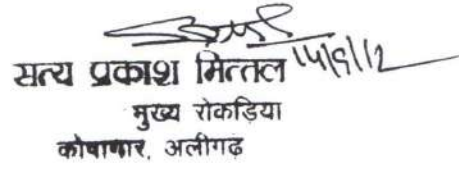 सत्य प्रकाश मित्तल 14/9/12
मुख्य रोकडिया
कोषागार, अलीगढ़